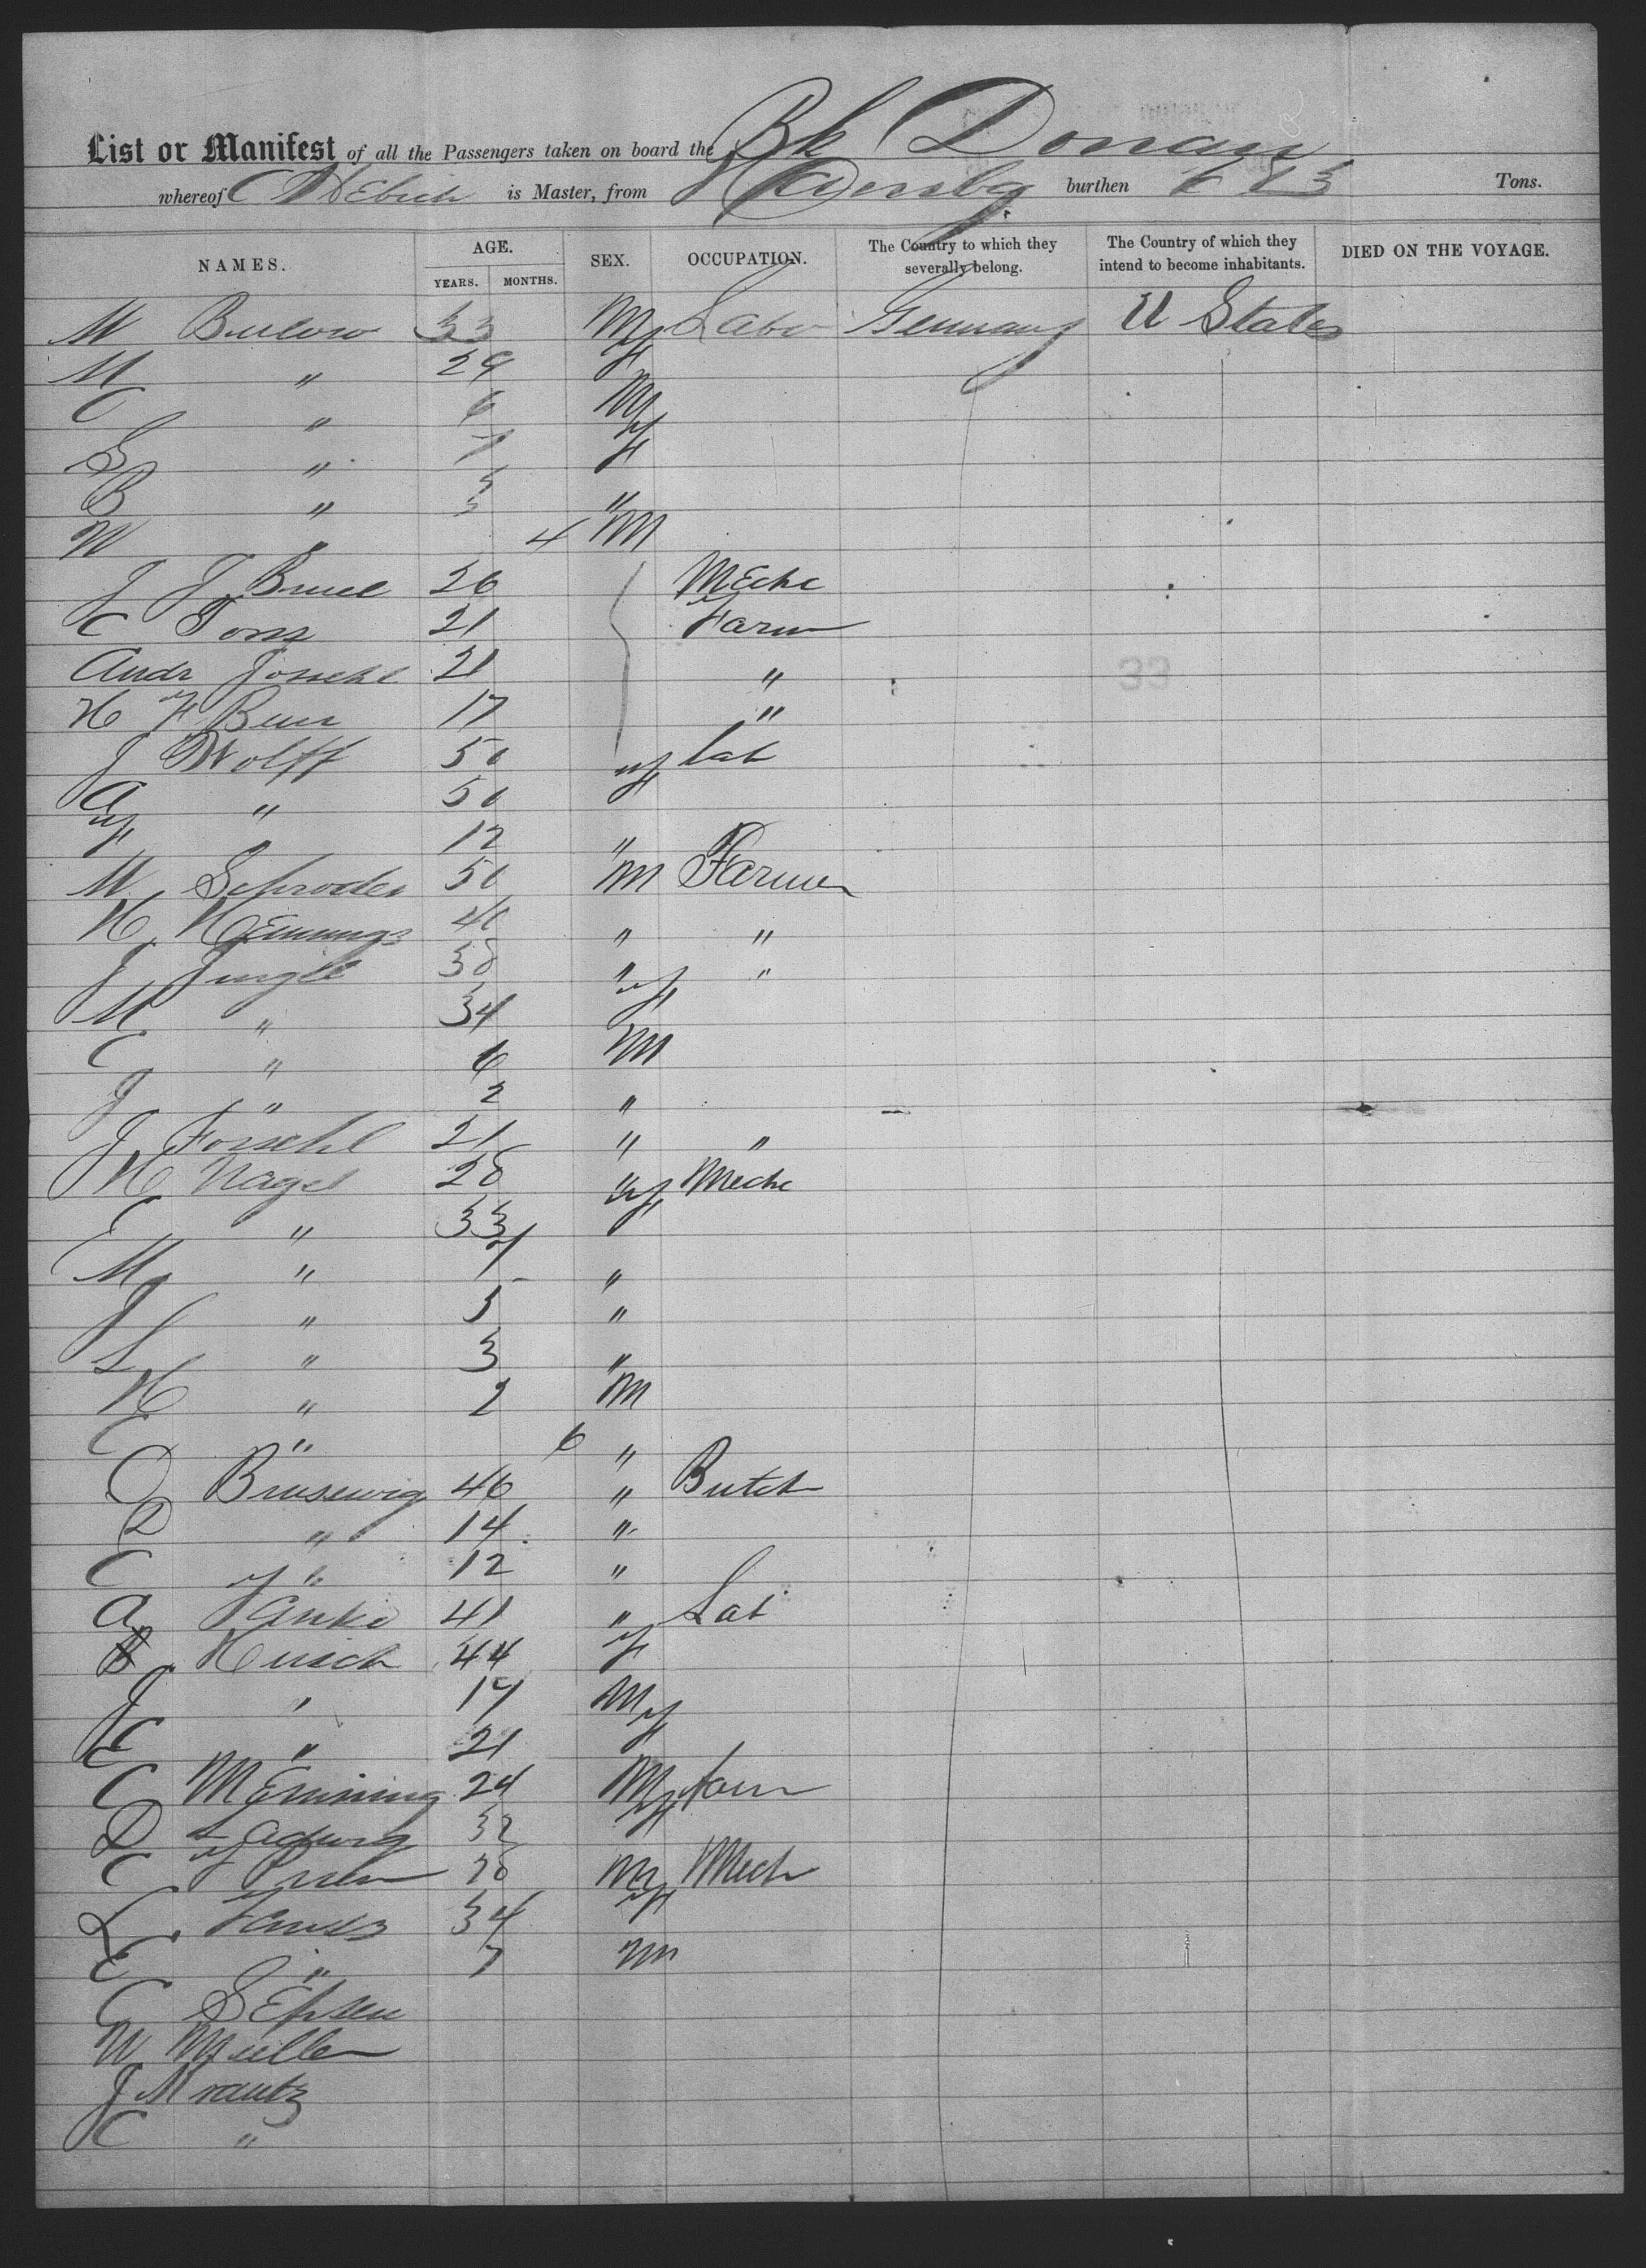 List or Manifest of all the Passengers taken on board the Bk Donau
whereof is Master, from burthen Tons.
NAMES. AGE. SEX. OCCUPATION. The Country to which they severally belong. The Country of which they intend to become inhabitants. DIED ON THE VOYAGE.
YEARS. MONTHS.
M Bulow 33 M Labo Germany U States
M " 29 f
C " 6 M
S " 7 f
B " 3 "
W " 4 M
J J 26 Mechc
C 21 Farm
Andr 21 "
H F 17 "
J Wolff 50 lab
A " 50 f
f 12 "
W Schroder 50 M Farmer
H Hennings 40 " "
J Jingle 38 " "
M " 34 f
C " 6 M
J " 2 "
J Forschl 21 " "
H Nagel 28 " Mechc
E " 33 f
M " 7 "
J " 5 "
L " 3 "
H " 2 M
C " 6 "
O Brusewig 46 " Butch
" 14 "
C " 12 "
A Janke 41 " Lab
44 f
J " 17 M
C " 21 f
C Menning 24 M farm
D Ladwig 32 f
C 28 M Mech
L 34 f
E " 7 M
C
W Muller
J Mrautz
C "